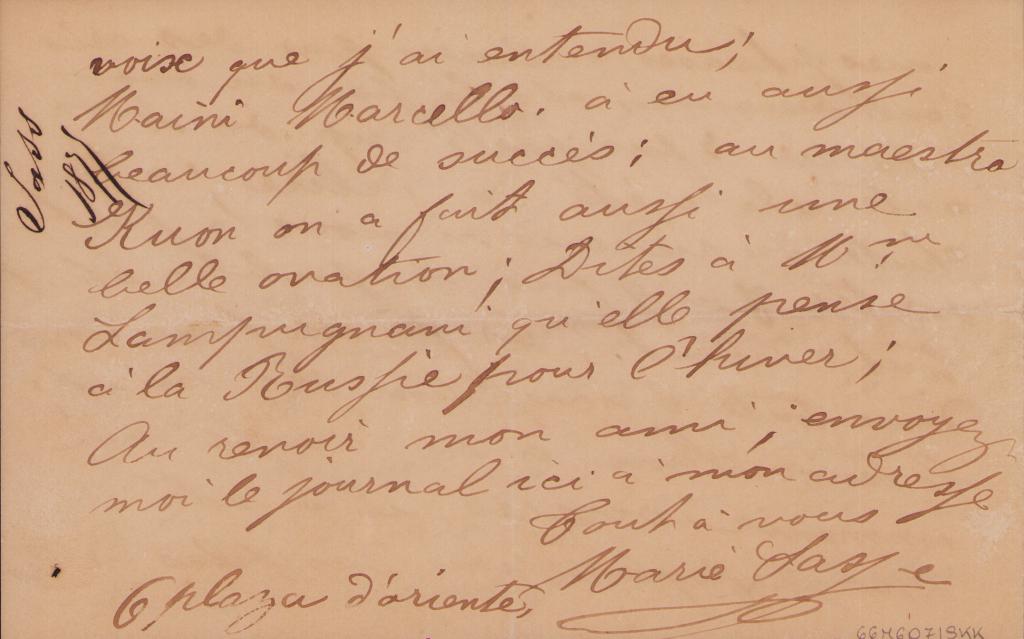 voix que j'ai entendu;
Maini Marcello. à eu aussi
beaucoup de succès; au maestro
Kuon on a fait aussi une
belle ovation; Dites à Mr
Lampugnani qu'elle pense
à la Russie pour l'hiver;
Au revoir mon ami; envoyez
moi le journal ici à mon adresse
Tout à vous
Marie Sasse
6 plaza d'oriente,
Sass